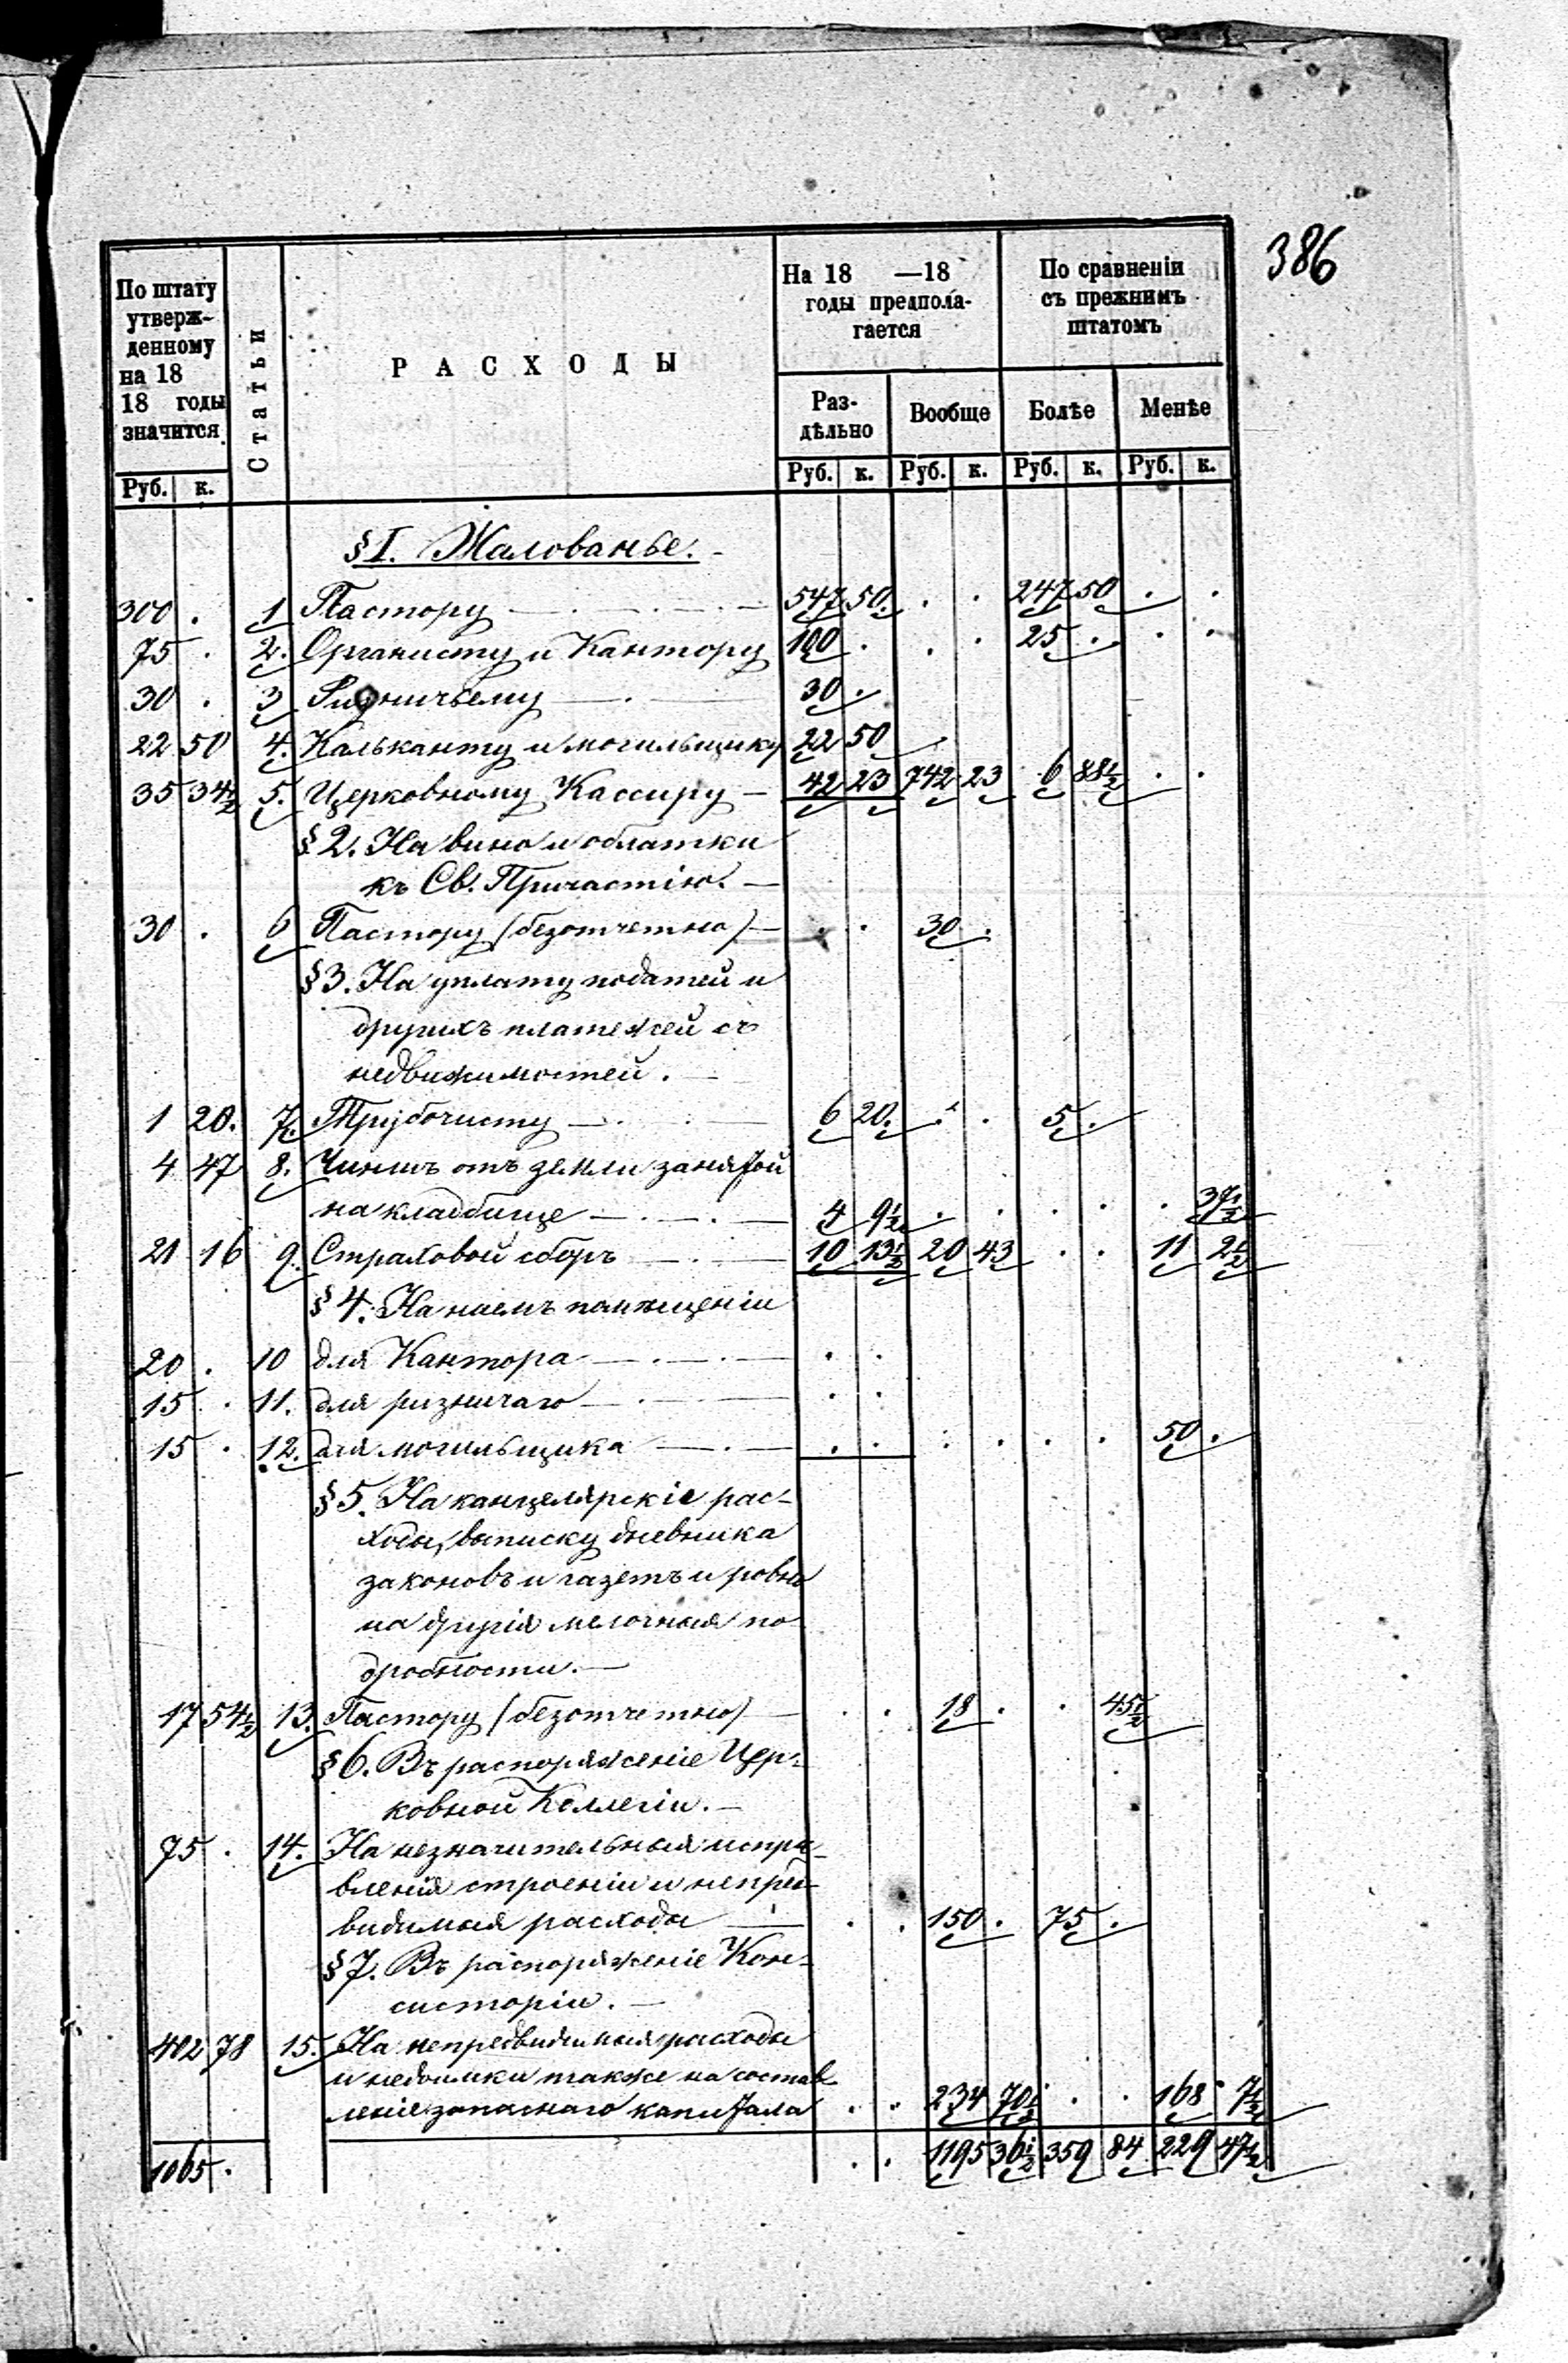 386
По штату утверж-денному на 18 18 годы значится
Статьи
РАСХОДЫ
На 18 —18 годы предпола-гается
По сравненiи съ прежнимъ штатомъ
Раз-дѣльно Вообще Болѣе Менѣе
Руб. к. Руб. к. Руб. к. Руб. к. Руб. к.
§ I. Жалованье.
300 . 1 Пастору 547 50. . . 247 50 . .
75 . 2. Органисту и Кантору 100 . . . 25 . . .
30 . 3 Ризничьему 30 .
22 50 4. Кальканту и могильщику 22 50
35 34½ 5. Церковному Кассиру 42 23 742 23 6 88½ . .
§ 2. На вино и облатки
къ Св. Причастiю.
30 . 6 Пастору (безотчетно) . . 30 .
§ 3. На уплату податей и
другихъ платежей съ
недвижимостей.
1 20. 7. Трубочисту 6 20. . . 5 .
4 47 8. Чиншъ отъ земли занятой
на кладбище 4 9½ . . . . . 37½
21 16 9. Страховой сборъ 10 13½ 20 43 . . 11 2½
§ 4. На наемъ помѣщенiи
20 . 10 для Кантора . .
15 . 11. для ризничаго . .
15 . 12. для могильщика . . . . . . 50 .
§ 5. На канцелярскiе рас-
ходы, выписку дневника
законовъ и газетъ и ровно
на другiя мелочныя по-
дробности.
17 54½ 13. Пастору (безотчетно) . . 18 . . 45½
§ 6. Въ распоряженiе Цер-
ковной Коллегiи.
75 . 14. На незначительныя испра-
вленiя строенiи и непред-
видимыя расходы . . 150 . 75 .
§ 7. Въ распоряженiе Кон-
систорiи.
402 78 15. На непредвидимыя расходы
и недоимки также на состав-
ленiе запаснаго капитала . . 234 70½ . . 168 7½
1065 . . . 1195 36½ 359 84 229 47½